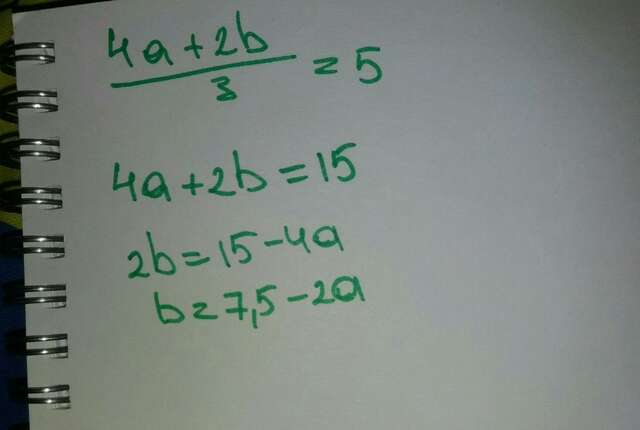 4a+2b
3
= 5
4a+2b=15
2b=15-4a
b=7,5-2a